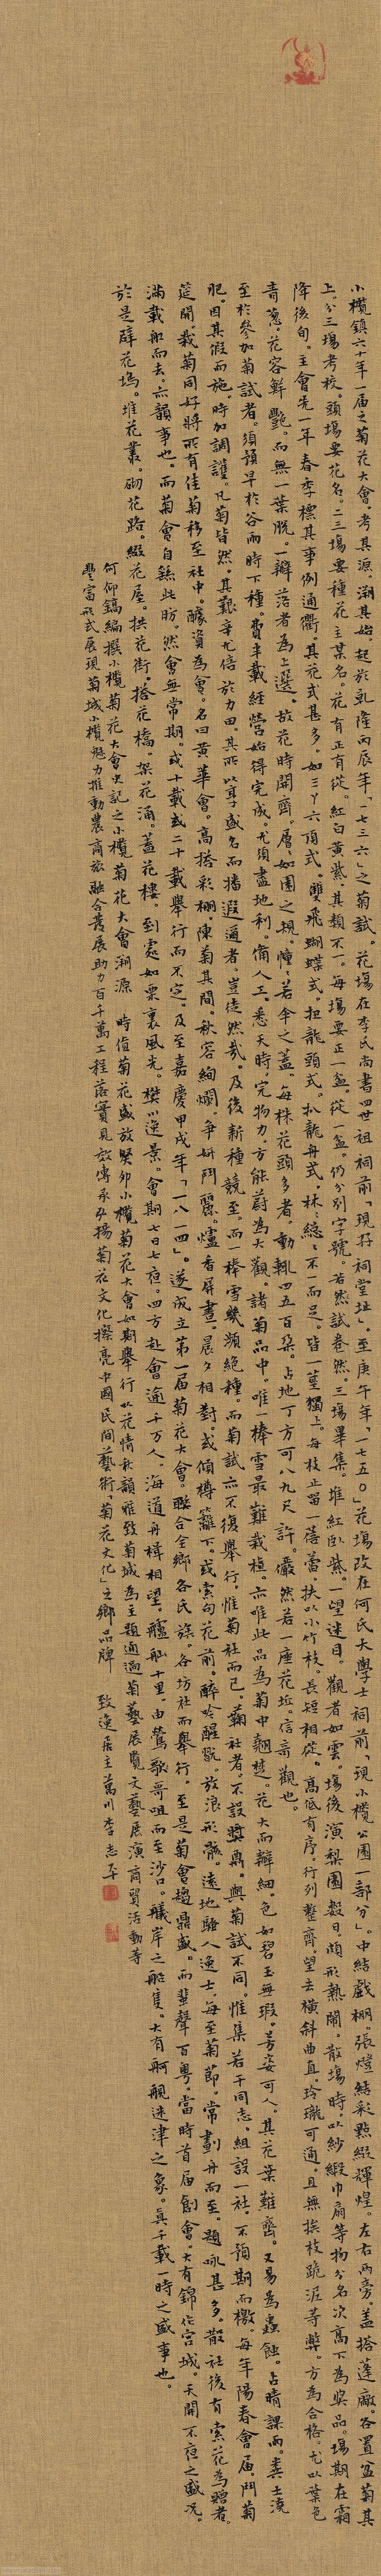 小欖鎮六十年一屆之菊花大會。考其源。溯其始。起於乾隆丙辰年「一七三六」之菊試。花場在李氏尚書四世祖祠前「現存祠堂址」。至庚午年「一七五〇」花場改在何氏大學士祠前「現小欖公園一部分」。中結戲棚。張燈結彩點綴輝煌。左右兩旁。蓋搭蓬廠。各置盆菊其
上。分三場考校。頭場要花名。二三場要種花主某名。花有正有從。紅白黃紫。其類不一。每場要正一盆。從一盆。仍分別字號。若然試卷然。三場畢集。堆紅臥紫。一望迷目。觀者如雲。場後演梨園數日。頗形熱鬧。散場時。以紗緞巾扇等物分名次高下為獎品。場期在霜
降後旬。主會先一年春季標其事例通衢。其花式甚多。如三丫六頂式。雙飛蝴蝶式。扭龍頭式。扒龍舟式。林林總總不一而足。皆一莖獨上。每枝止留一蓓蕾。扶以小竹枝。長短相從。高低有序。行列整齊。望去橫斜曲直。玲瓏可通。且無挨枝跪泥等弊。方為合格。尤以葉色
青蔥。花容鮮艷。而無一葉脫。一瓣落者為上選。故花時開齊。層層如園之規。憧憧若傘之蓋。每株花頭多者。動輒四五百朶。占地丁方可八九尺許。儼然若一座花坵。信奇觀也。
至於參加菊試者。須預早於谷雨時下種。費半載經營始得完成。尤須盡地利。備人工。悉天時。完物力。方能蔚為大觀。諸菊品中。唯一棒雪最難栽植。亦唯此品為菊中翹楚。花大而瓣細。色如碧玉無瑕。芳姿可人。其花葉難齊。又易為蟲蝕。占晴課雨。糞土澆
肥。因其假而施。時加調護。凡菊皆然。其艱辛尤倍於力田。其所以享盛名而播遐邇者。豈徒然哉。及後新種競至。而一棒雪幾瀕絕種。而菊試亦不復舉行。惟菊社而已。菊社者。不設獎鼎。與菊試不同。惟集若干同志。組設一社。不預期而檄。每年陽春會屆。鬥菊
筵開。栽菊同好將所有佳菊移至社中。醵資為會。名曰黃華會。高搭彩棚。陳菊其間。秋容絢爛。爭妍鬥麗。爐香屏畫。晨夕相對。或傾樽籬下。或索句花前。醉吟醒翫。放浪形骸。遠地騷人逸士。每至菊節。常劃舟而至。題咏甚多。散社後有索花為贈者。
滿載船而去。亦韻事也。而菊會自繇此昉。然會無常期。或十載或二十載舉行而不定。及至嘉慶甲戌年「一八一四」。遂成立第一屆菊花大會。聯合全鄉各氏族。各坊社而舉行。至是菊會趨鼎盛。而蜚聲百粵。當時首屆創會。大有錦作宮城。天開不夜之盛況。
於是辟花塢。堆花叢。砌花路。綴花屋。拱花街。搭花橋。架花涌。蓋花樓。到處如栗裏風光。樊川逸景。會期七日七夜。四方赴會逾千万人。海道舟楫相望。舳舻十里。由鶯歌咀而至沙口。艤岸之船隻。大有舸艦迷津之象。真千載一時之盛事也。
何仰鎬編撰小欖菊花大會史記之小欖菊花大會溯源　時值菊花盛放癸卯小欖菊花大會如期舉行以花情秋韻雅致菊城為主題通過菊藝展覽文藝展演商貿活動等
豐富形式展現菊城小欖魅力推動農商旅融合發展助力百千萬工程落實見效傳承弘揚菊花文化擦亮中國民間藝術「菊花文化」之鄉品牌　致逸居主萬川李志平